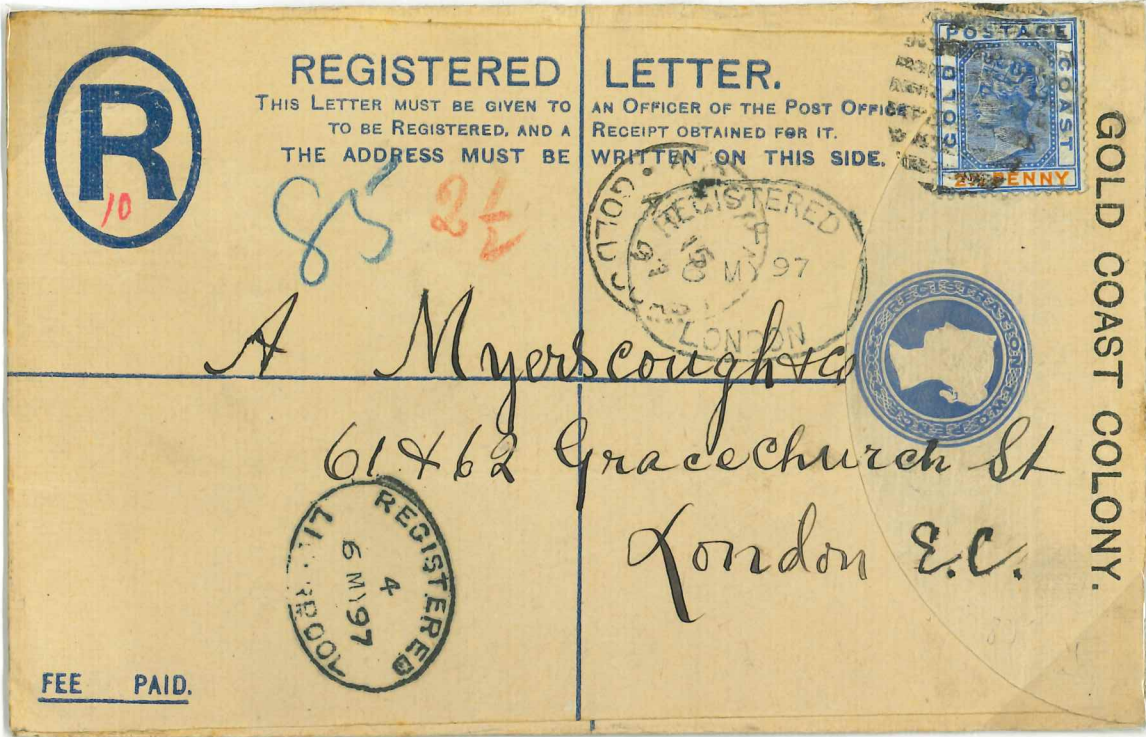 R
10
REGISTERED LETTER.
THIS LETTER MUST BE GIVEN TO AN OFFICER OF THE POST OFFICE
TO BE REGISTERED, AND A RECEIPT OBTAINED FOR IT.
THE ADDRESS MUST BE WRITTEN ON THIS SIDE.
POSTAGE
GOLD COAST
PENNY
GOLD COAST COLONY.
85
2½
GOLD CO
REGISTERED
MY 97
LONDON
A Myerscough & Co
61 & 62 Gracechurch St
London E.C.
REGISTERED
4
6 MY 97
RPOOL
FEE PAID.